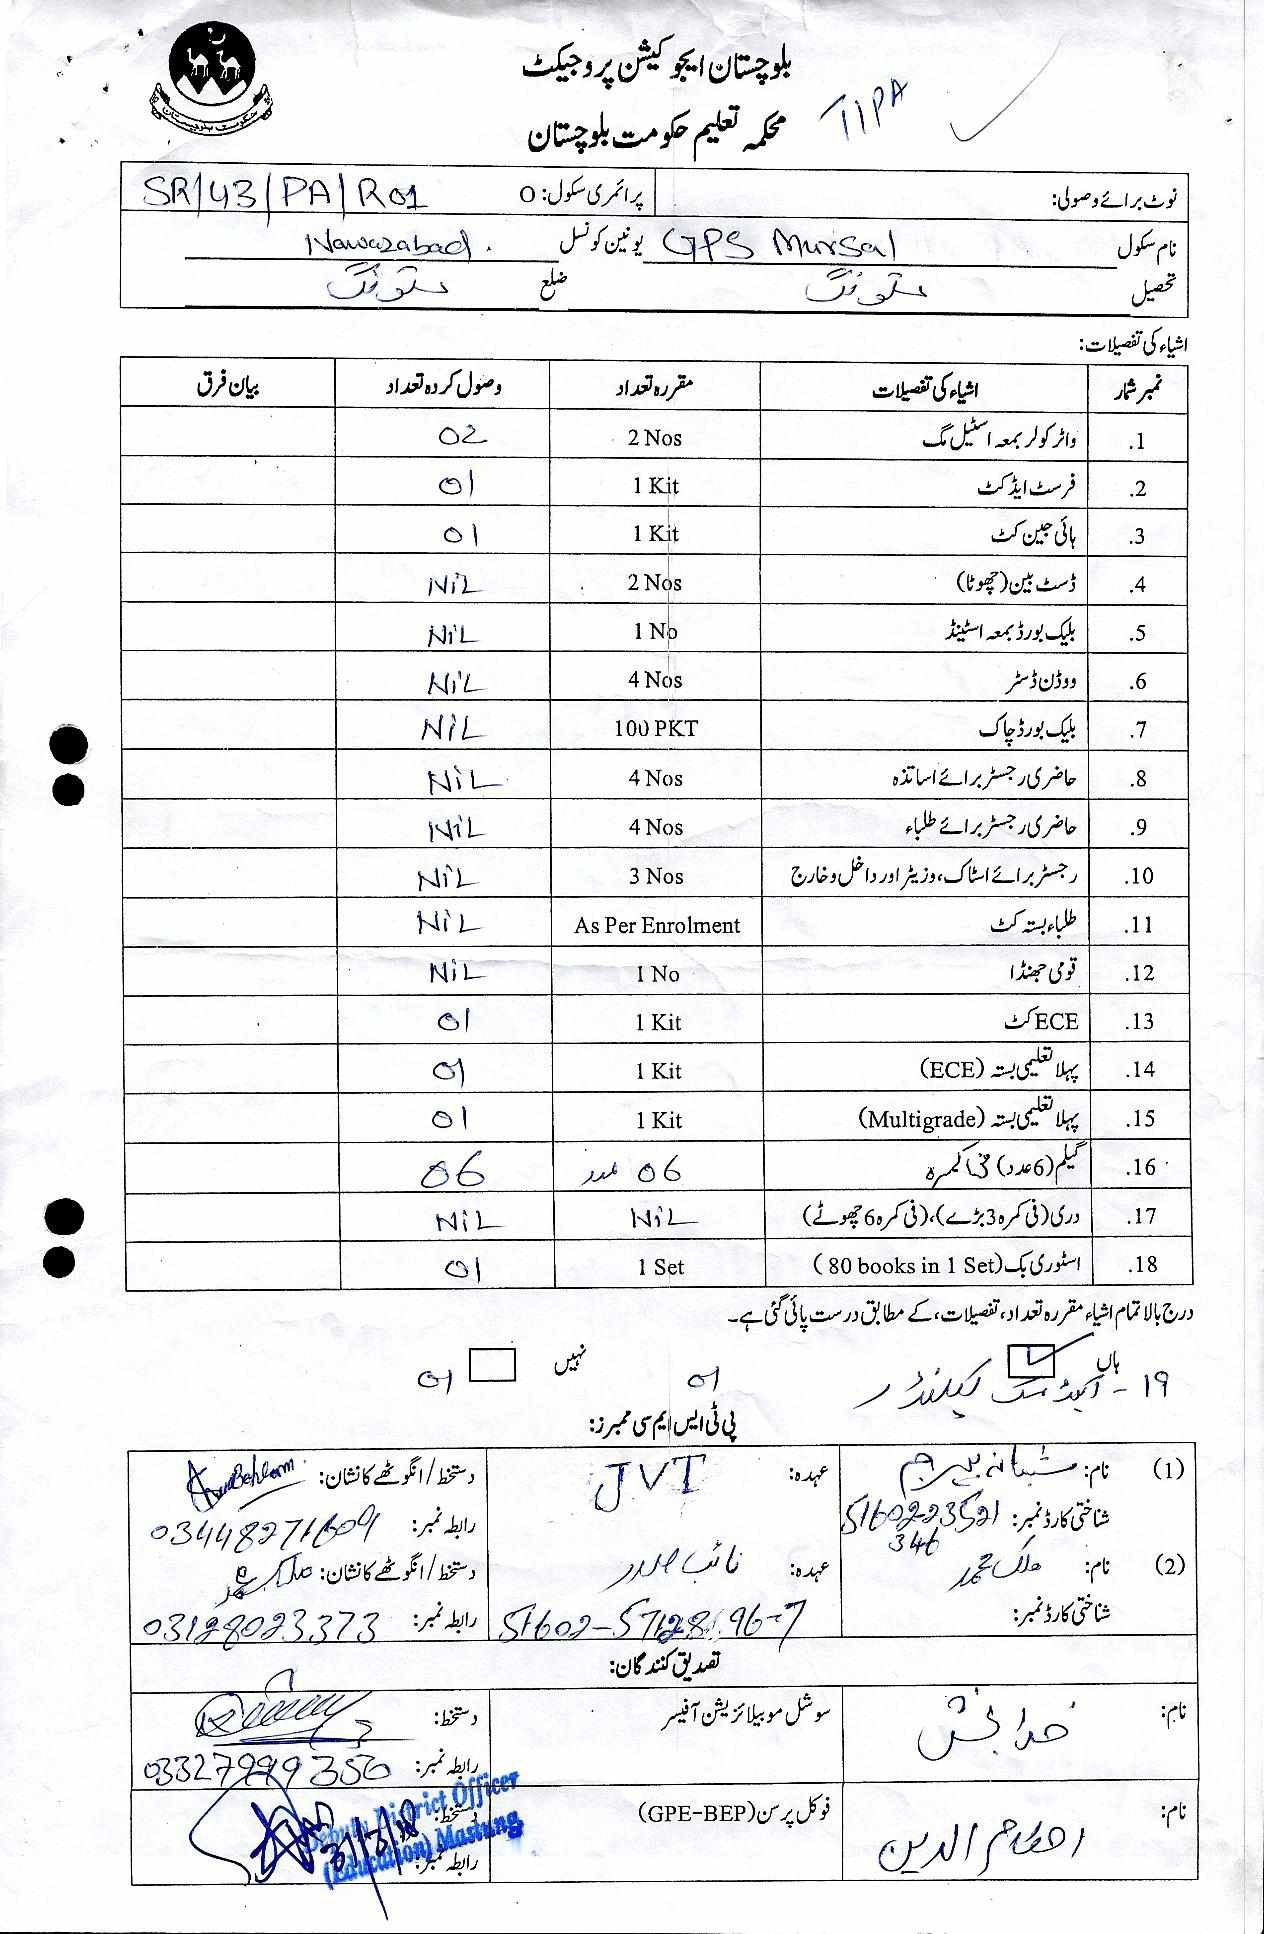 بلوچستان ایجوکیشن پروجیکٹ
محکمہ تعلیم حکومت بلوچستان
TIPA
حکومت بلوچستان
نوٹ برائے وصولی: پرائمری سکول: O SR/43/PA/R01
نام سکول GPS Mursal یونین کونسل Nawazabad.
تحصیل مستونگ ضلع مستونگ
اشیاء کی تفصیلات:
نمبر شمار اشیاء کی تفصیلات مقررہ تعداد وصول کردہ تعداد بیان فرق
.1 واٹر کولر بمعہ اسٹیل مگ 2 Nos 02
.2 فرسٹ ایڈ کٹ 1 Kit 01
.3 ہائی جین کٹ 1 Kit 01
.4 ڈسٹ بین (چھوٹا) 2 Nos NiL
.5 بلیک بورڈ بمعہ اسٹینڈ 1 No NiL
.6 ووڈن ڈسٹر 4 Nos NiL
.7 بلیک بورڈ چاک 100 PKT NiL
.8 حاضری رجسٹر برائے اساتذہ 4 Nos NiL
.9 حاضری رجسٹر برائے طلباء 4 Nos NiL
.10 رجسٹر برائے اسٹاک، وزیٹر اور داخل و خارج 3 Nos NiL
.11 طلباء بستہ کٹ As Per Enrolment NiL
.12 قومی جھنڈا 1 No NiL
.13 ECE کٹ 1 Kit 01
.14 پہلا تعلیمی بستہ (ECE) 1 Kit 01
.15 پہلا تعلیمی بستہ (Multigrade) 1 Kit 01
.16 گیلم (6 عدد) فی کمرہ 06 عدد 06
.17 دری (فی کمرہ 3 بڑے)، (فی کمرہ 6 چھوٹے) NiL NiL
.18 اسٹوری بک (80 books in 1 Set) 1 Set 01
درج بالا تمام اشیاء مقررہ تعداد، تفصیلات، کے مطابق درست پائی گئی ہے۔
ہاں نہیں
۱۹ - کیلنڈر 01 01
پی ٹی ایس ایم سی ممبرز:
(1) نام: شبانہ بہرام عہدہ: JVT دستخط / انگوٹھے کا نشان:
شناختی کارڈ نمبر: 51602-23521 346 رابطہ نمبر: 03448271609
(2) نام: ملک محمد عہدہ: نائب صدر دستخط / انگوٹھے کا نشان: ملک محمد
شناختی کارڈ نمبر: 51602-5712896-7 رابطہ نمبر: 03128023373
تصدیق کنندگان:
نام: خدا بخش سوشل موبیلائزیشن آفیسر دستخط:
رابطہ نمبر: 03327999350
نام: احتشام الدین فوکل پرسن (GPE-BEP) دستخط:
31/3/18
رابطہ نمبر:
Deputy District Officer
(Education) Mastung